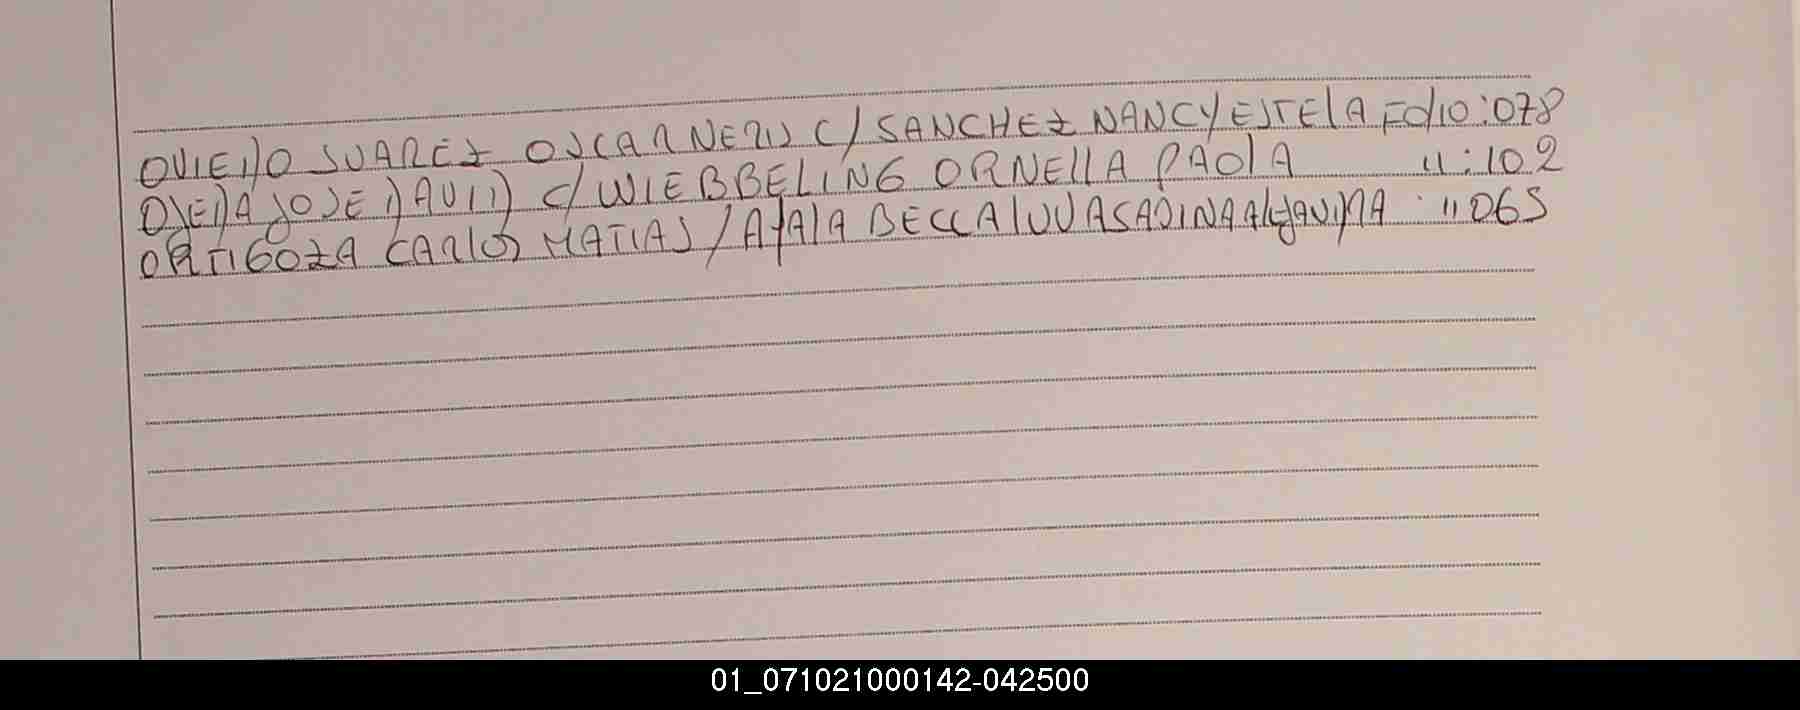 OVIEDO SUAREZ OSCAR NERIS C/ SANCHEZ NANCY ESTELA FOLIO: 078
OJEDA JOSE DAVID C/ WIEBBELING ORNELLA PAOLA 11: 102
ORTIGOZA CARLOS MATIAS / AYALA BECCALUVA 11 065
01_071021000142-042500